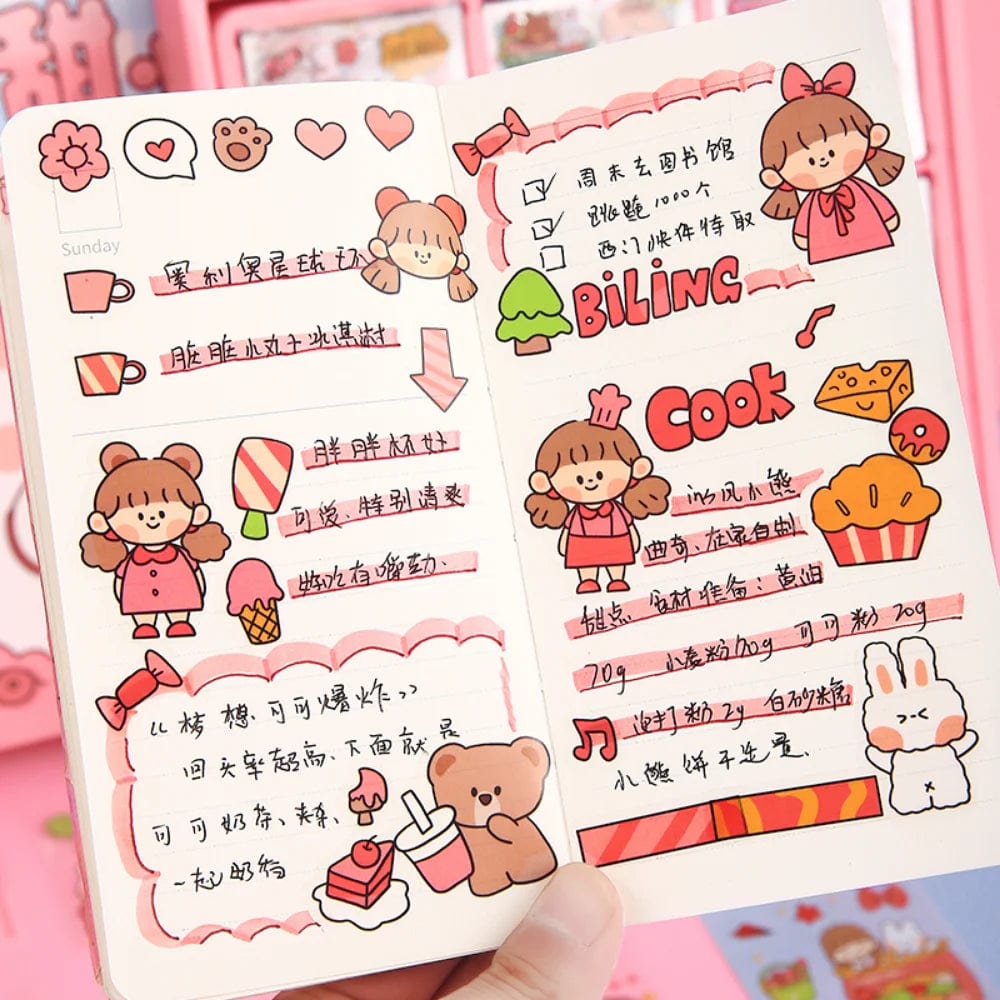 Sunday
奥利奥星球切
脏脏小丸子冰淇淋
胖胖杯好
可爱、特别清爽
好吃有嚼劲、
“梦想可可爆炸”
回头率超高、下面就是
可可奶茶、夹杂、
一起奶香
周末去图书馆
跳跑1000个
西门快件待取
BiLiNG
COOK
小熊
曲奇、在家自制
甜点 食材准备：黄油
70g 小麦粉90g 可可粉20g
泡打粉2g 白砂糖
小熊饼干适量、